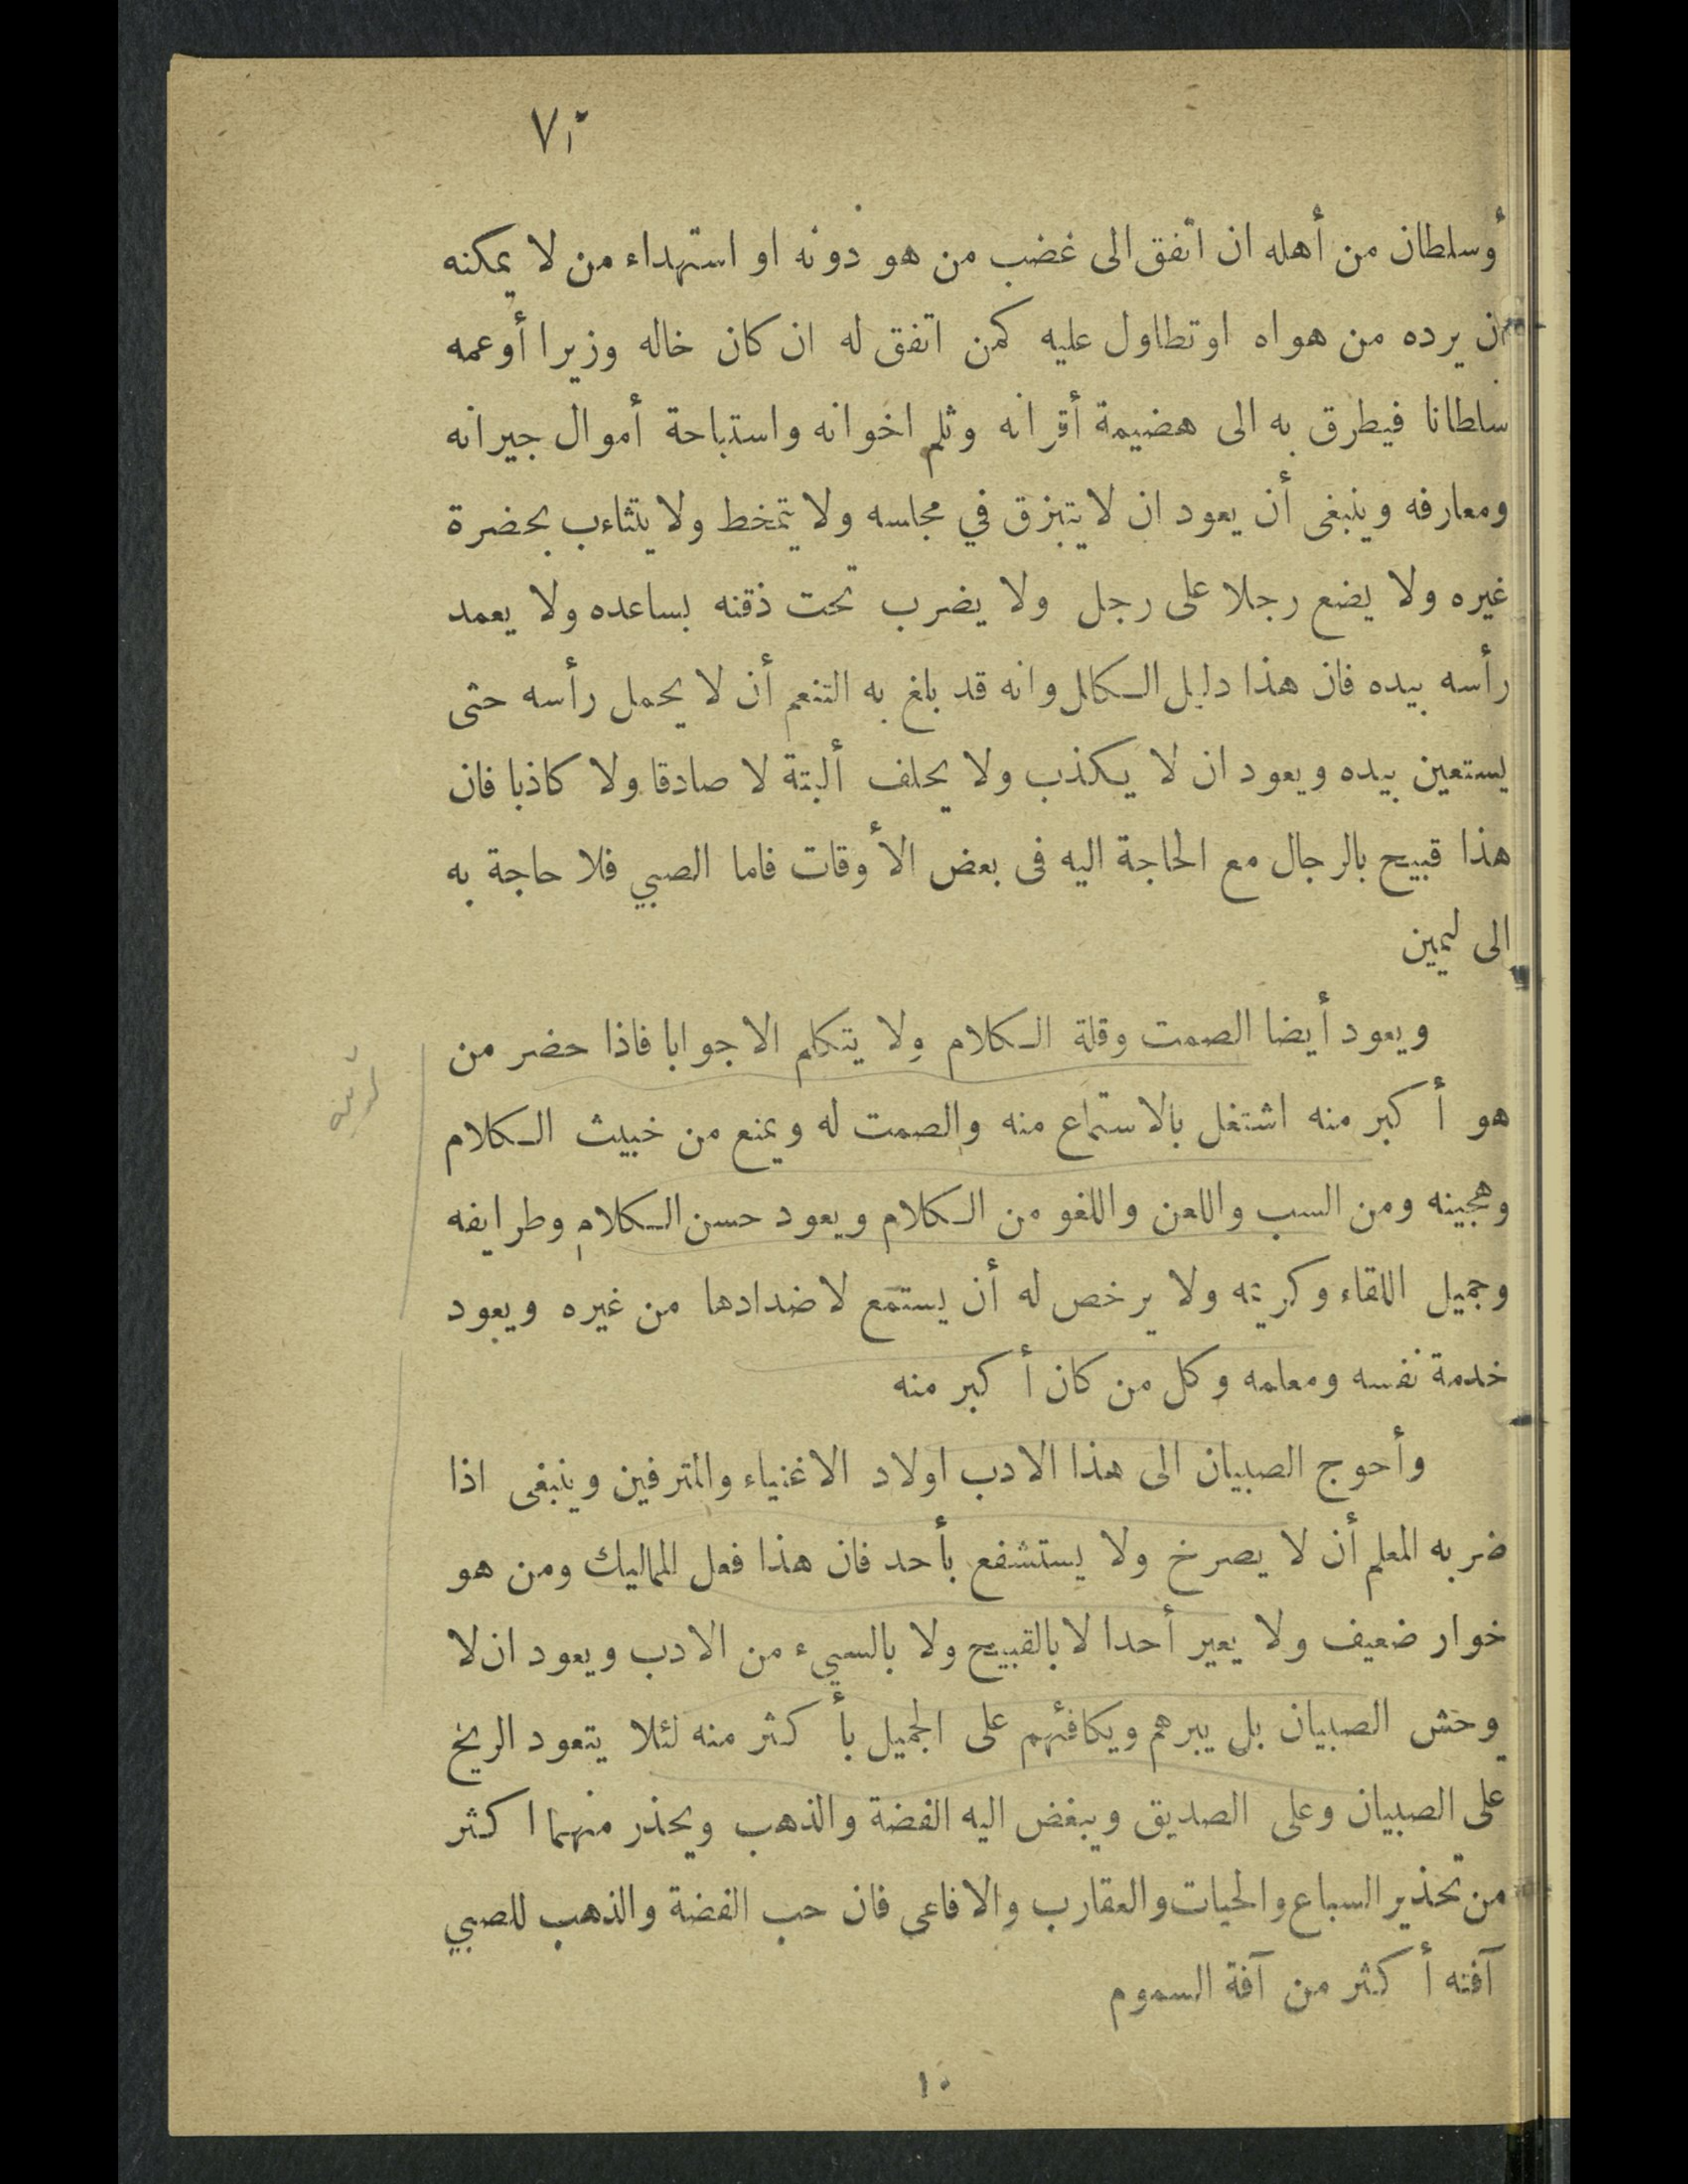 أوسلطان من أهله ان اتفق الى غضب من هو دونه او استهداء من لا يمكنه
ن يرده من هواه او تطاول عليه كمن اتفق له ان كان خاله وزيرا أو عمه
سلطانا فيطرق به الى هضيمة أقرانه وثلم اخوانه واستباحة أموال جيرانه
ومعارفه وينبغى أن يعود ان لا يتبزق في مجلسه ولا يتمخط ولا يتثاءب بحضرة
غيره ولا يضع رجلا على رجل ولا يضرب تحت ذقنه بساعده ولا يعمد
رأسه بيده فان هذا دليل الكال وانه قد بلغ به التنعم أن لا يحمل رأسه حتى
يستعين بيده ويعود ان لا يكذب ولا يحلف ألبتة لا صادقا ولا كاذبا فان
هذا قبيح بالرجال مع الحاجة اليه فى بعض الأوقات فاما الصبي فلا حاجة به
الى ليمين
ويعود أيضا الصمت وقلة الكلام ولا يتكلم الا جوابا فاذا حضر من
هو أكبر منه اشتغل بالاستماع منه والصمت له ويمنع من خبيث الكلام
وهجينه ومن السب واللعن واللغو من الكلام ويعود حسن الكلام وطرايفه
وجميل اللقاء وكريته ولا يرخص له أن يستمع لاضدادها من غيره ويعود
خدمة نفسه ومعلمه وكل من كان أكبر منه
وأحوج الصبيان الى هذا الادب اولاد الاغنياء والمترفين وينبغى اذا
ضربه المعلم أن لا يصرخ ولا يستشفع بأحد فان هذا فعل المماليك ومن هو
خوار ضعيف ولا يعير أحدا لا بالقبيح ولا بالسيء من الادب ويعود ان لا
يوحش الصبيان بل يبرهم ويكافئهم على الجميل بأكثر منه لئلا يتعود الربح
على الصبيان وعلى الصديق ويبغض اليه الفضة والذهب ويحذر منهما اكثر
من تحذير السباع والحيات والعقارب والافاعى فان حب الفضة والذهب للصبي
آفته أكثر من آفة السموم
١٠